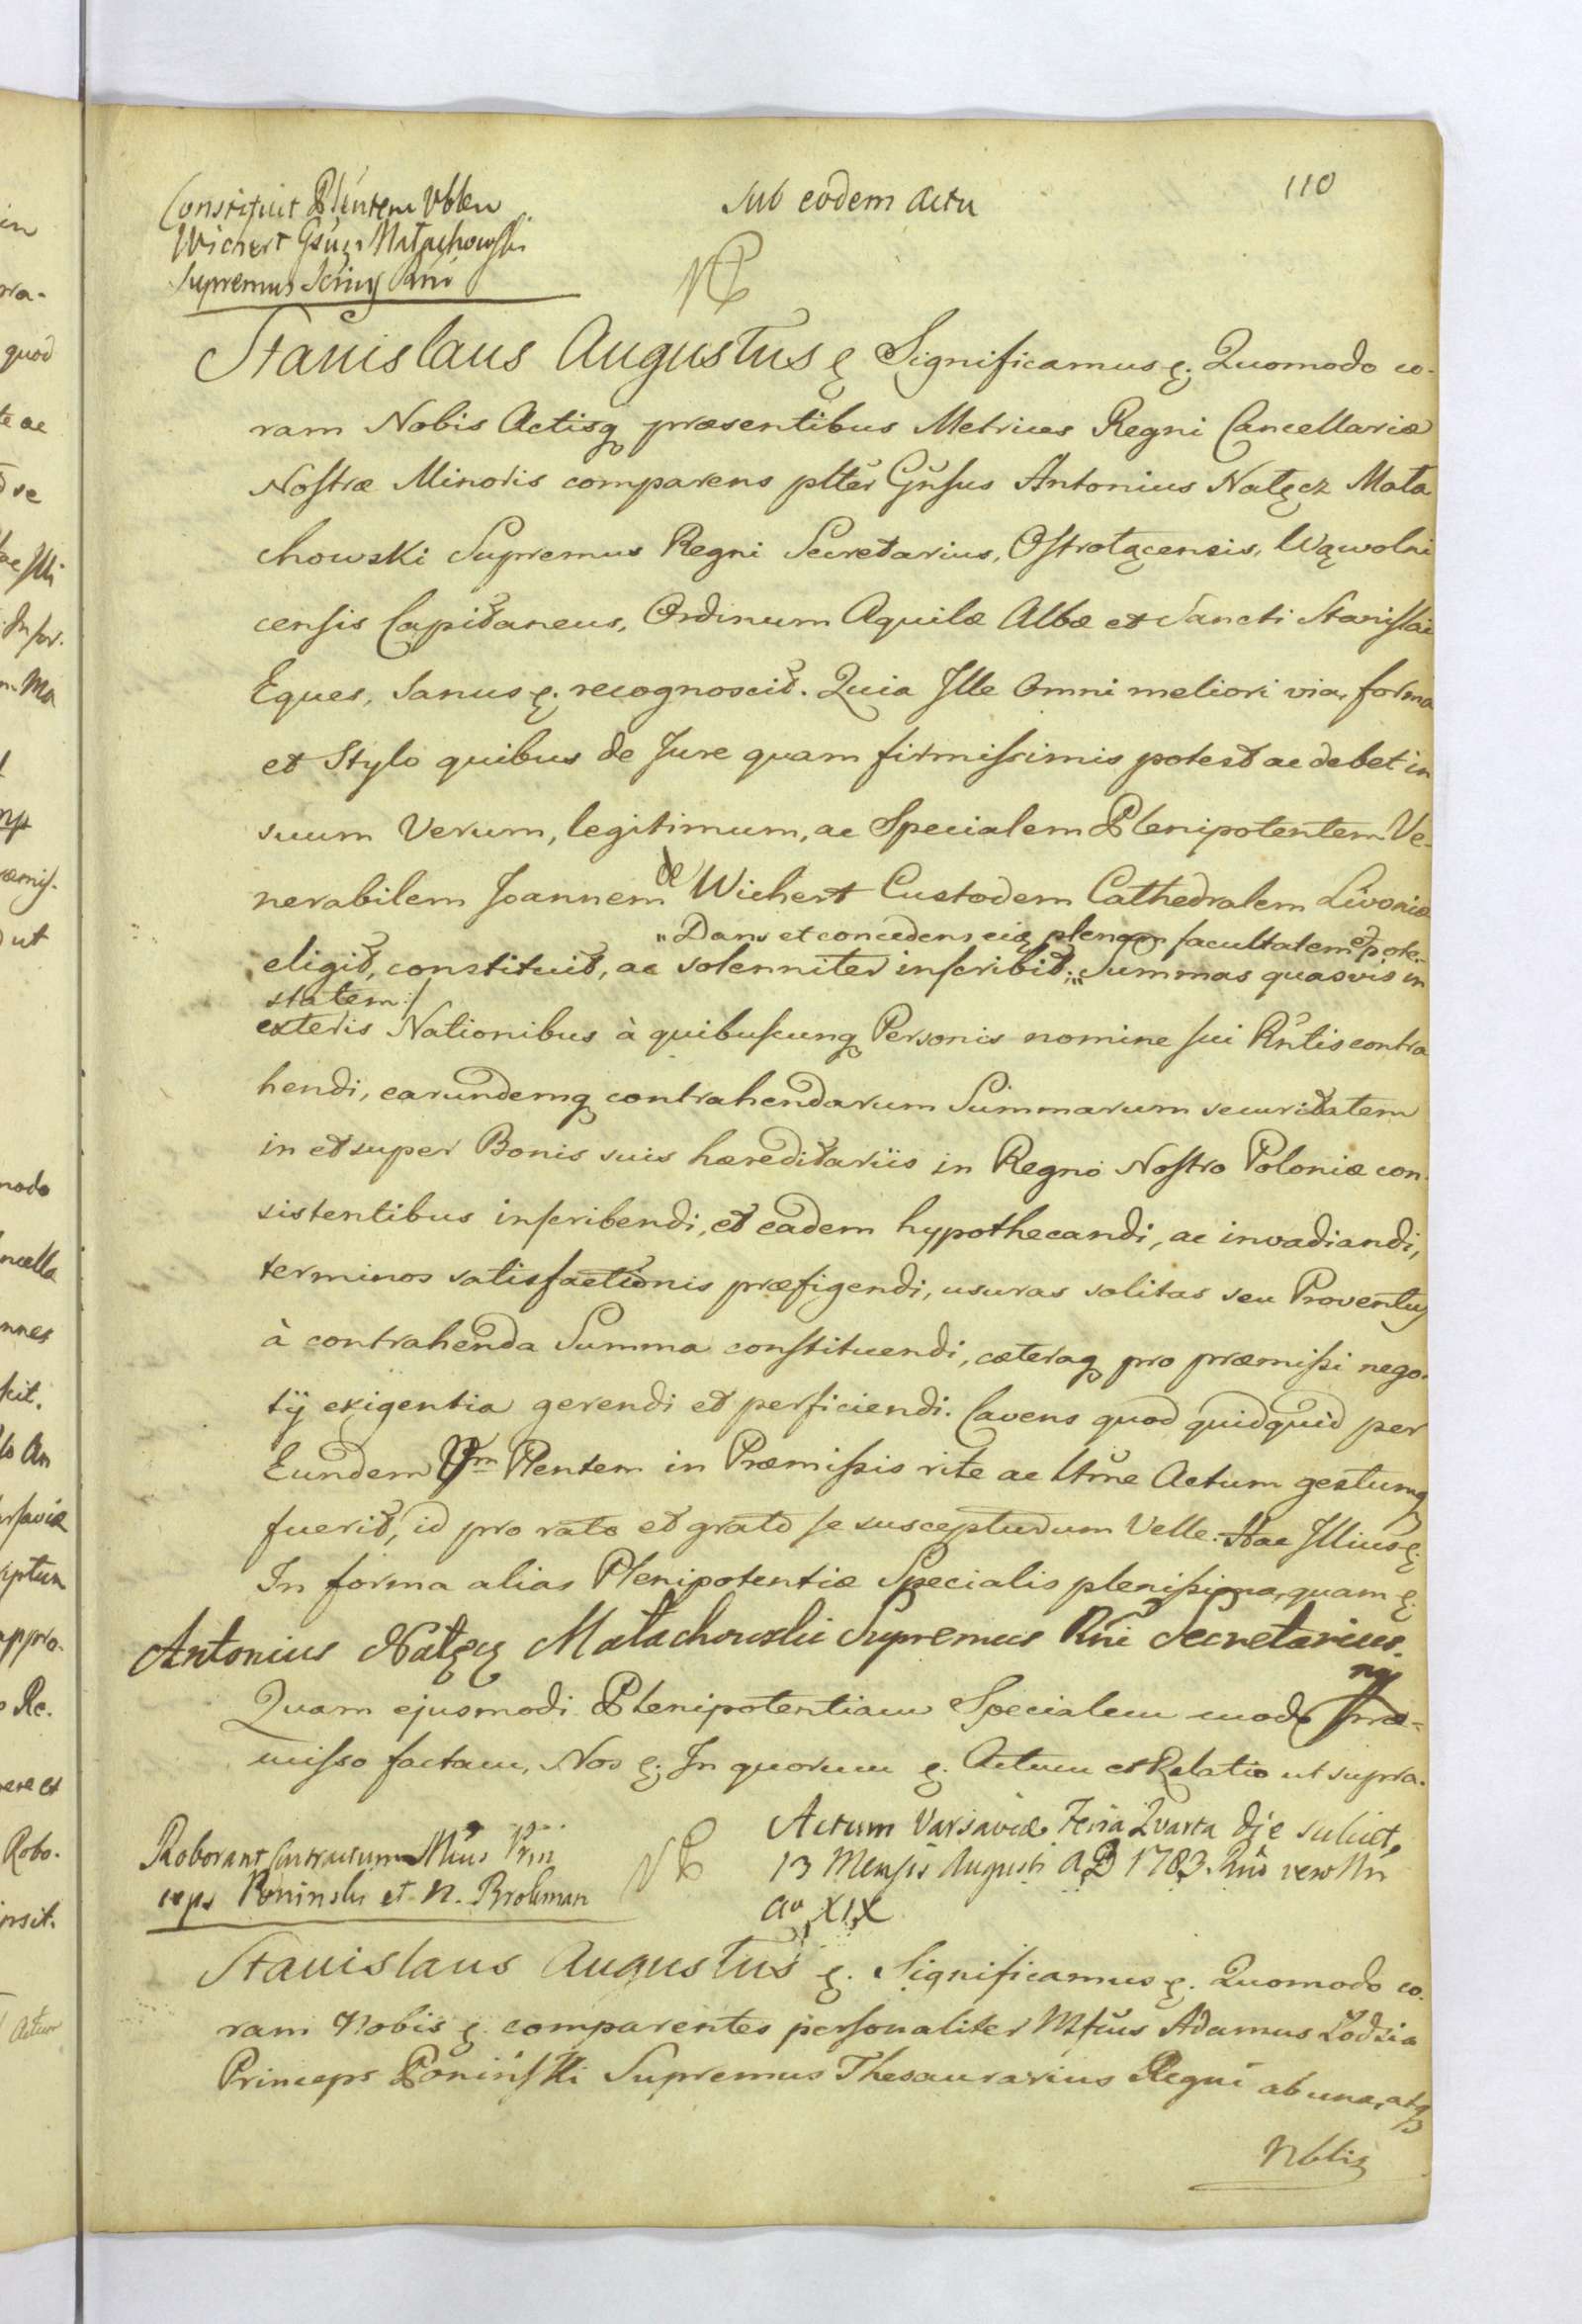 110
Constituit Plentem Vblem
Wichert Gsus Małachowski
Supremus Rni
sub eodem Actu
Stanislaus Augustus Significamus Quomodo co-
ram Nobis Actisq praesentibus Metrices Regni Cancellariæ
Nostræ Minoris comparens plter Gnsus Antonius Nałęcz Mała
chowski Supremus Regni Secretarius, Ostrołącensis, Wąwolni
censis Capitaneus, Ordinum Aquilæ Albæ et Sancti Stanislai
Eques, Sanus recognoscit. Quia Ille Omni meliori via, forma
et Stylo quibus de Jure quam firmissimis potest ac debet in
suum Verum, legitimum, ac Specialem Plenipotentem Ve-
nerabilem Joannem de Wichert Custodem Cathedralem Livoniæ
„Dans et concedens eiq plenam facultatem et pote-
eligit, constituit, ac solenniter inscribit;„ Summas quasvis in
statem:/
exteris Nationibus à quibuscunq Personis nomine sui Rntis contra
hendi, earundemq contrahendarum Summarum securitatem
in et super Bonis suis hæreditariis in Regno Nostro Poloniæ con-
sistentibus inscribendi, et eadem hypothecandi, ac invadiandi,
terminos satisfactionis præfigendi, usuras solitas seu Proventus
à contrahenda Summa constituendi, cæteraq pro præmissi nego-
tij exigentia gerendi et perficiendi. Cavens quod quidquid per
Eundem Plentem in Præmissis rite ac ltme Actum gestumq
fuerit, id pro rato et grato se suscepturum Velle. Hac Illius
In forma alias Plenipotentiæ Specialis plenissima, quam
Antonius Nałęcz Małachowski Supremus Rni Secretarius. mp
Quam ejusmodi Plenipotentiam Specialem modo præ-
misso factam, Nos In quorum Actum et Relatio ut supra.
Roborant Contractum Mcus Prin
ceps Poninski et N. Brokman
Actum Varsaviæ Feria Quarta die scilicet
13 Mensis Augusti AD 1783. Rni vero Nri
Ao XIX
Stanislaus Augustus Significamus Quomodo co-
ram Nobis comparentes personaliter Mfcus Adamus Łodzia
Princeps Poniński Supremus Thesaurarius Regni ab una, atq
Nblis